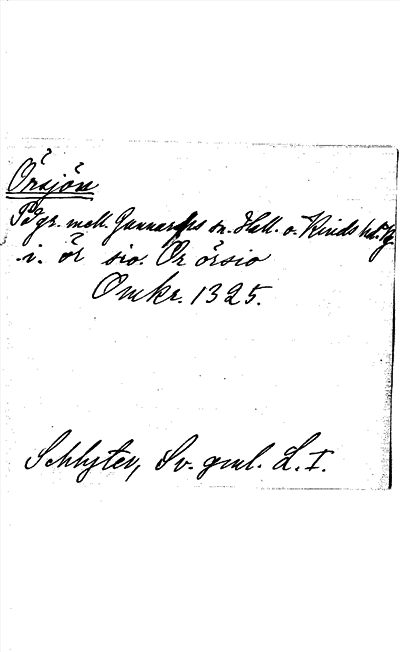 Örsjön
På gr. mell. Gunnarsps sn. Hall. o. Kinds hd. Vg.
i. ör sio. Or örsio
Omkr. 1325.
Schlyter, Sv. gml. L. I.